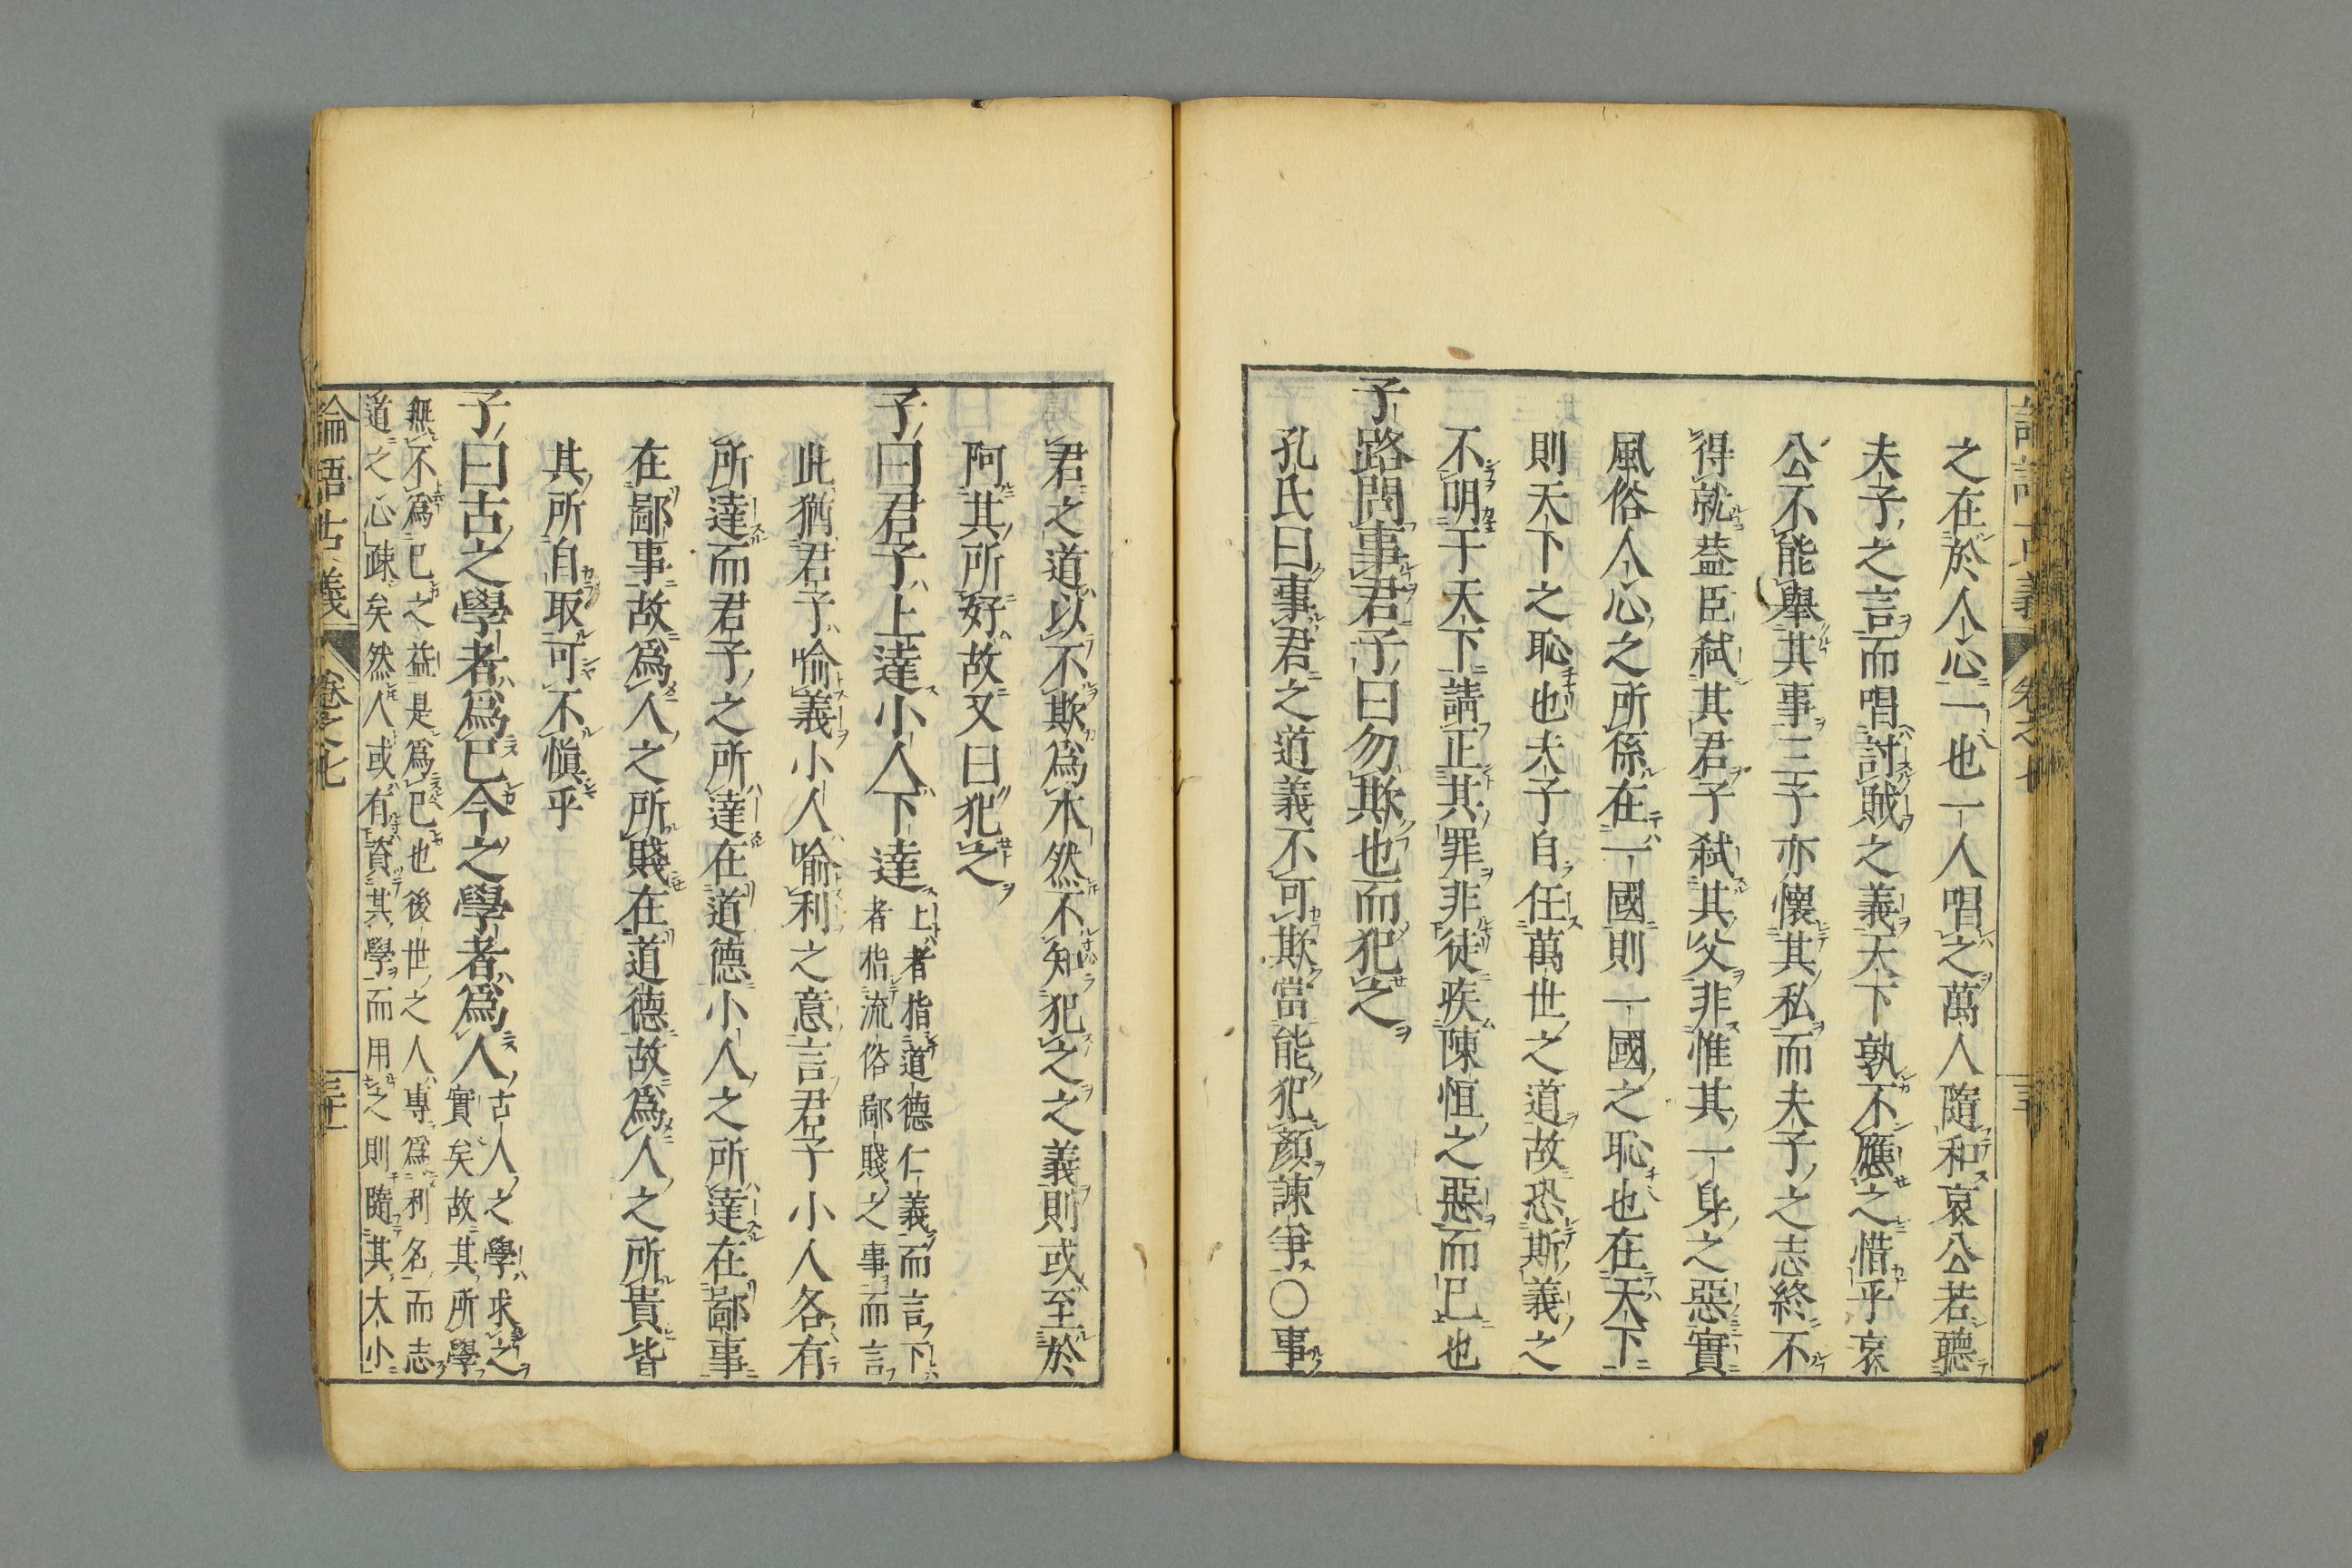 論語古義
卷之七
之在於人心一也一人唱之萬人隨和哀公若聽
夫子之言而唱討賊之義天下孰不應之惜乎哀
公不能舉其事三子亦懷其私而夫子之志終不
得就蓋臣弑其君子弑其父非惟其一身之惡實
風俗人心之所係在一國則一國之恥也在天下
則天下之恥也夫子自任萬世之道故恐斯義之
不明于天下請正其罪非徒疾陳恒之惡而已也
子路問事君子曰勿欺也而犯之
孔氏曰事君之道義不可欺當能犯顏諫爭〇事
君之道以不欺爲本然不知犯之之義則或至於
阿其所好故又曰犯之
子曰君子上達小人下達
上者指道德仁義而言下
者指流俗鄙賤之事而言
此猶君子喻義小人喻利之意言君子小人各有
所達而君子之所達在道德小人之所達在鄙事
在鄙事故爲人之所賤在道德故爲人之所貴皆
其所自取可不愼乎
子曰古之學者爲己今之學者爲人
古人之學求之
實矣故其所學
無不爲己之益是爲己也後世之人專爲利名而志
道之心疎矣然人或有資其學而用之則隨其大小
論語古義
卷之七
三十一